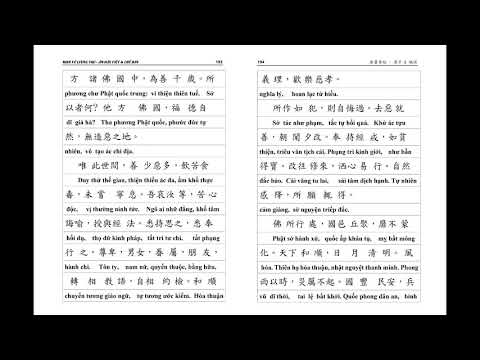 193
方 諸 佛 國 中, 為 善 千 歲。所
phương chư Phật quốc trung: vi thiện thiên tuế. Sở
以 者 何? 他 方 佛 國, 福 德 自
dĩ giả hà? Tha phương Phật quốc, phước đức tự
然, 無 造 惡 之 地。
nhiên, vô tạo ác chi địa.
唯 此 世 間, 善 少 惡 多, 飲 苦 食
Duy thử thế gian, thiện thiểu ác đa, ẩm khổ thực
毒, 未 嘗 寧 息。吾 哀 汝 等, 苦 心
độc, vị thường ninh tức. Ngô ai nhữ đẳng, khổ tâm
誨 喻, 授 與 經 法。悉 持 思 之, 悉 奉
hối dụ, thọ dữ kinh pháp, tất trì tư chi, tất phụng
行 之。尊 卑, 男 女, 眷 屬, 朋 友,
hành chi. Tôn ty, nam nữ, quyến thuộc, bằng hữu,
轉 相 教 語, 自 相 約 檢。和 順
chuyển tương giáo ngữ, tự tương ước kiểm. Hòa thuận
194
義 理, 歡 樂 慈 孝。
nghĩa lý, hoan lạc từ hiếu.
所 作 如 犯, 則 自 悔 過。去 惡
Sở tác như phạm, tắc tự hối quá. Khứ ác tựu
善, 朝 聞 夕 改。奉 持 經 戒, 如 貧
thiện, triêu văn tịch cải. Phụng trì kinh giới, như bần
得 寶。改 往 修 來。洒 心 易 行。自 然
đắc bảo. Cải vãng tu lai, sái tâm dịch hạnh. Tự nhiên
感 降, 所 願 輒 得。
cảm giáng, sở nguyện triếp đắc.
佛 所 行 處, 國 邑 丘 聚, 靡 不 蒙
Phật sở hành xứ, quốc ấp khâu tụ, mỵ bất mông
化。天 下 和 順, 日 月 清 明。風
hóa. Thiên hạ hòa thuận, nhật nguyệt thanh minh. Phong
雨 以 時, 災 厲 不 起。國 豐 民 安, 兵
vũ dĩ thời, tai lệ bất khởi. Quốc phong dân an, binh